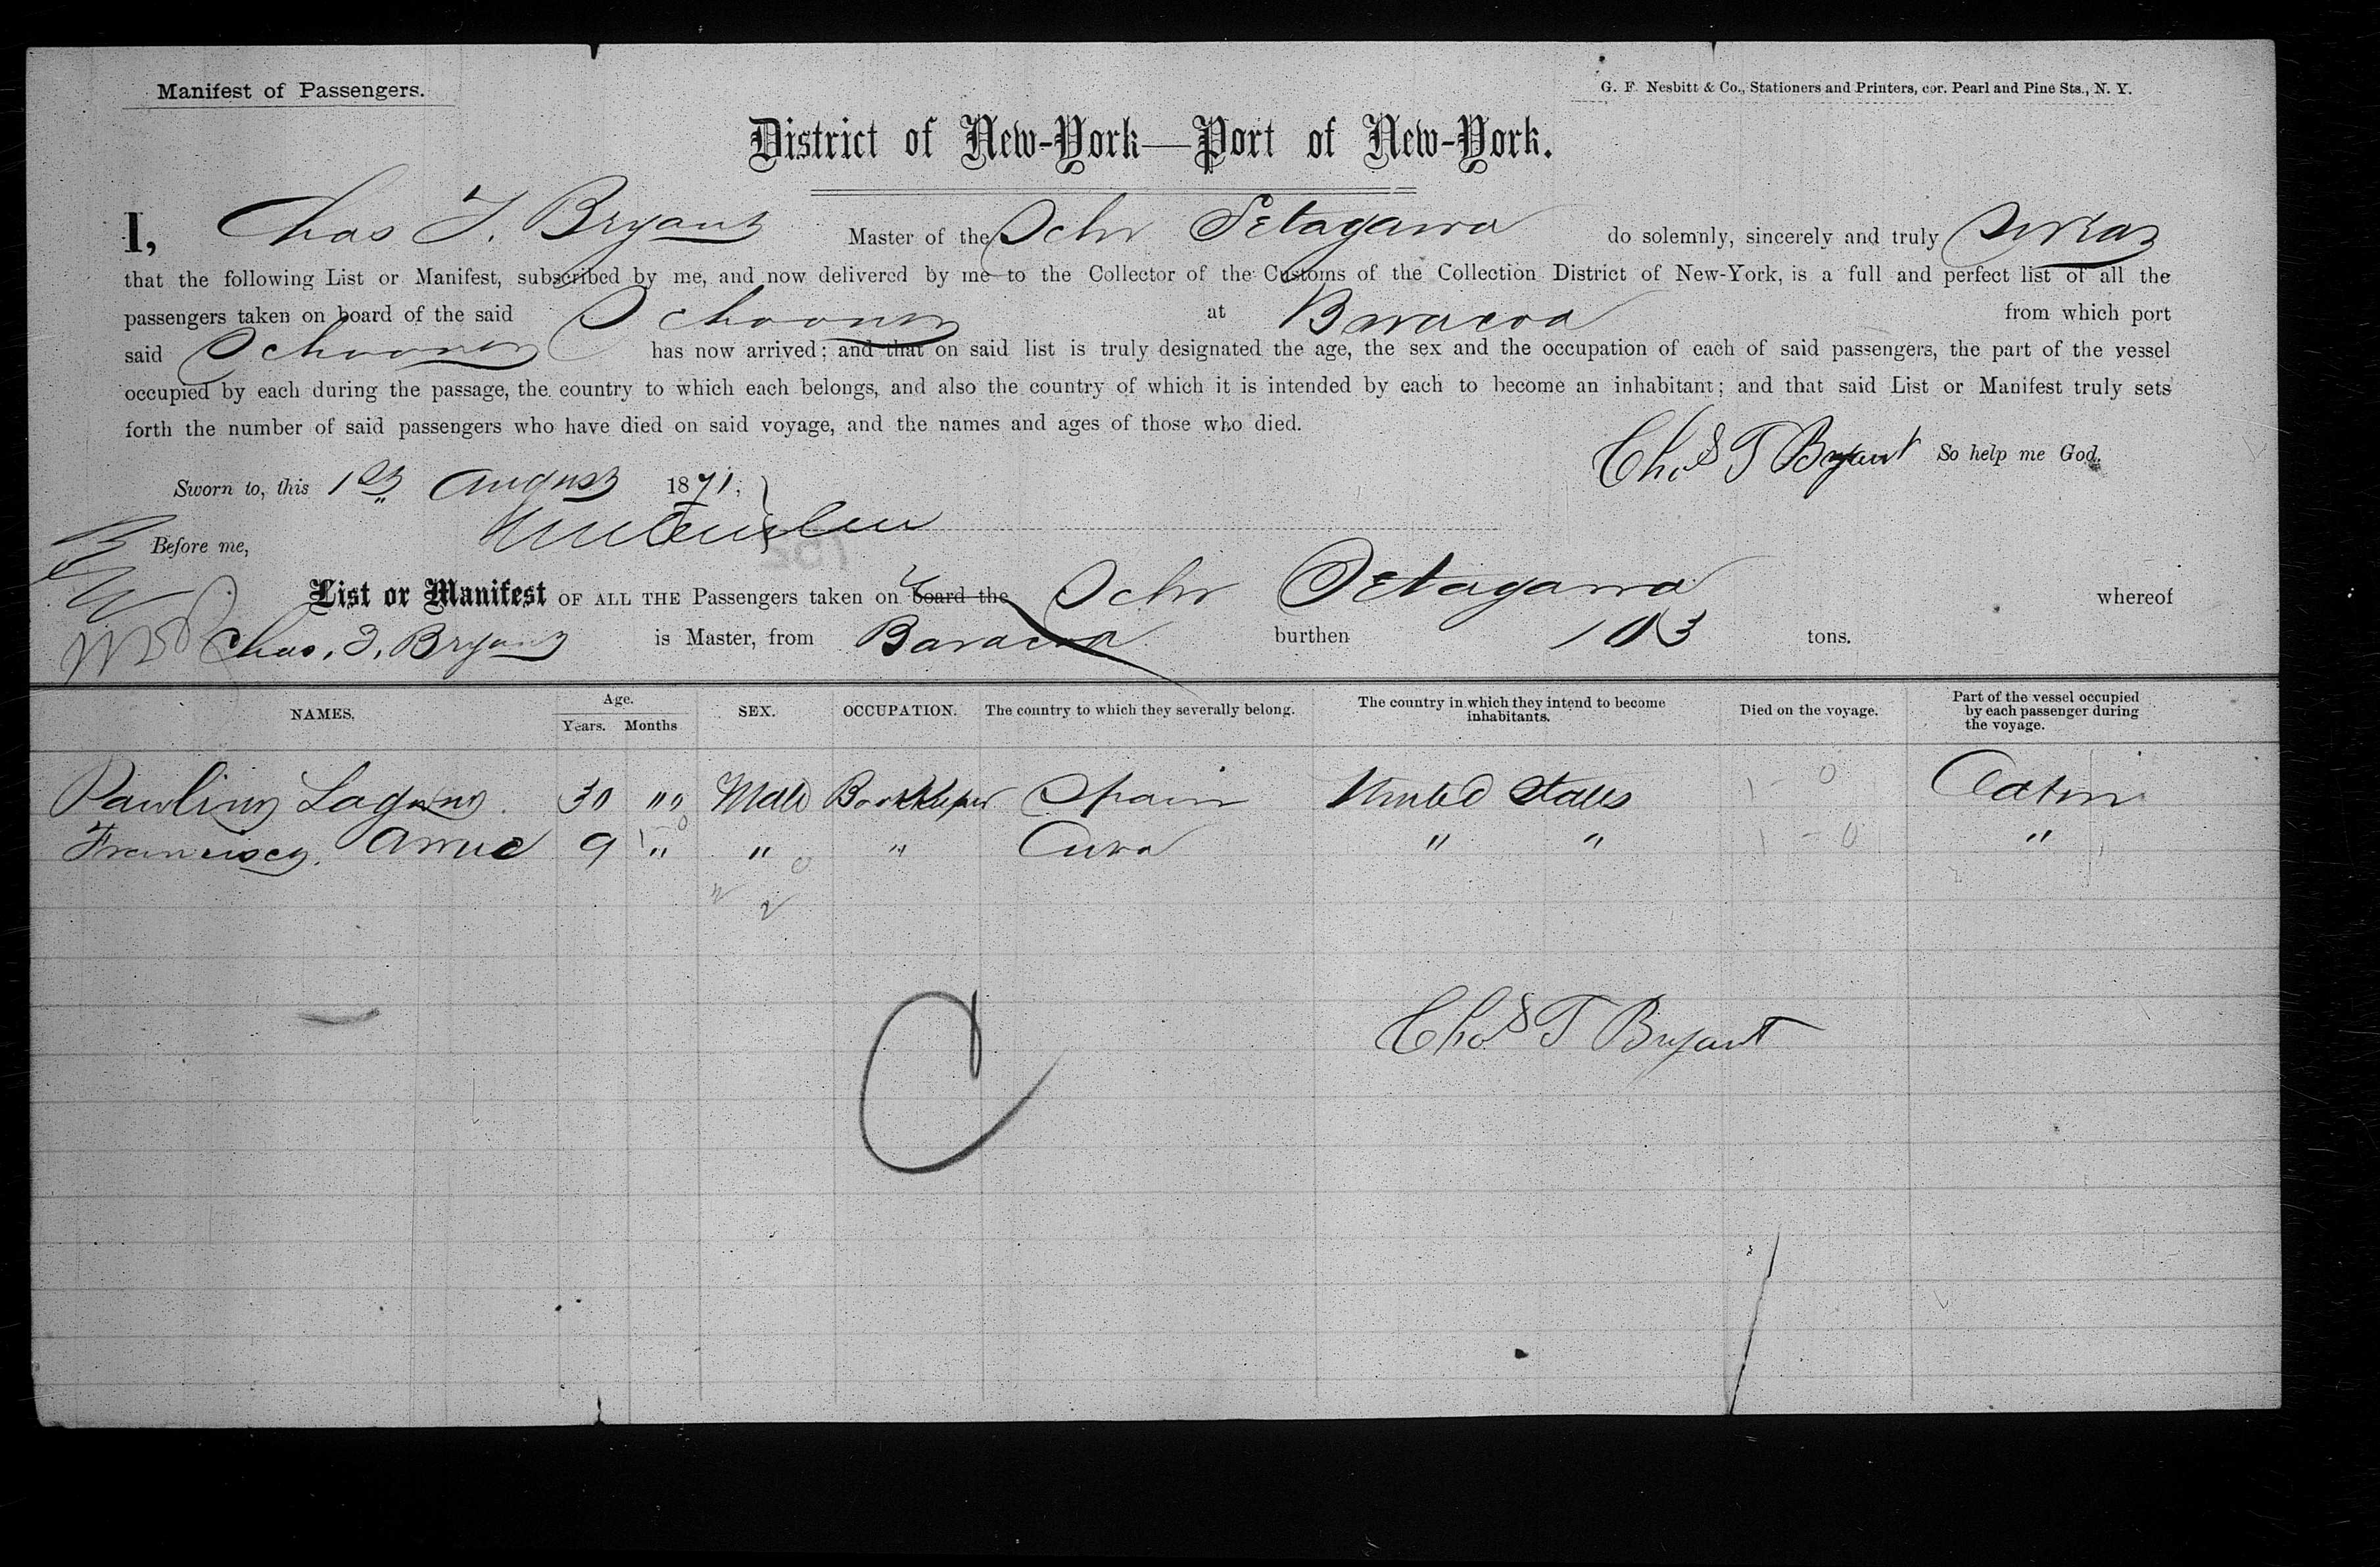 Manifest of Passengers.
G. F. Nesbitt & Co., Stationers and Printers, cor. Pearl and Pine Sts., N. Y.
District of New-York—Port of New-York.
I, Chas T. Bryant Master of the Schr Setagawa do solemnly, sincerely and truly swear
that the following List or Manifest, subscribed by me, and now delivered by me to the Collector of the Customs of the Collection District of New-York, is a full and perfect list of all the
passengers taken on board of the said Schooner at Baracoa from which port
said Schooner has now arrived; and that on said list is truly designated the age, the sex and the occupation of each of said passengers, the part of the vessel
occupied by each during the passage, the country to which each belongs, and also the country of which it is intended by each to become an inhabitant; and that said List or Manifest truly sets
forth the number of said passengers who have died on said voyage, and the names and ages of those who died.
Chas T Bryant So help me God.
Sworn to, this 1st August 1871;
Before me,
List or Manifest OF ALL THE Passengers taken on board the Schr Setagawa whereof
Chas. T. Bryant is Master, from Baracoa burthen 103 tons.
NAMES. Age. Years. Months SEX. OCCUPATION. The country to which they severally belong. The country in which they intend to become inhabitants. Died on the voyage. Part of the vessel occupied by each passenger during the voyage.
Paulino 30 " " Male Bookkeeper Spain United States Cabin
Francisco 9 " " " Cuba " " "
2
Chas T Bryant
C